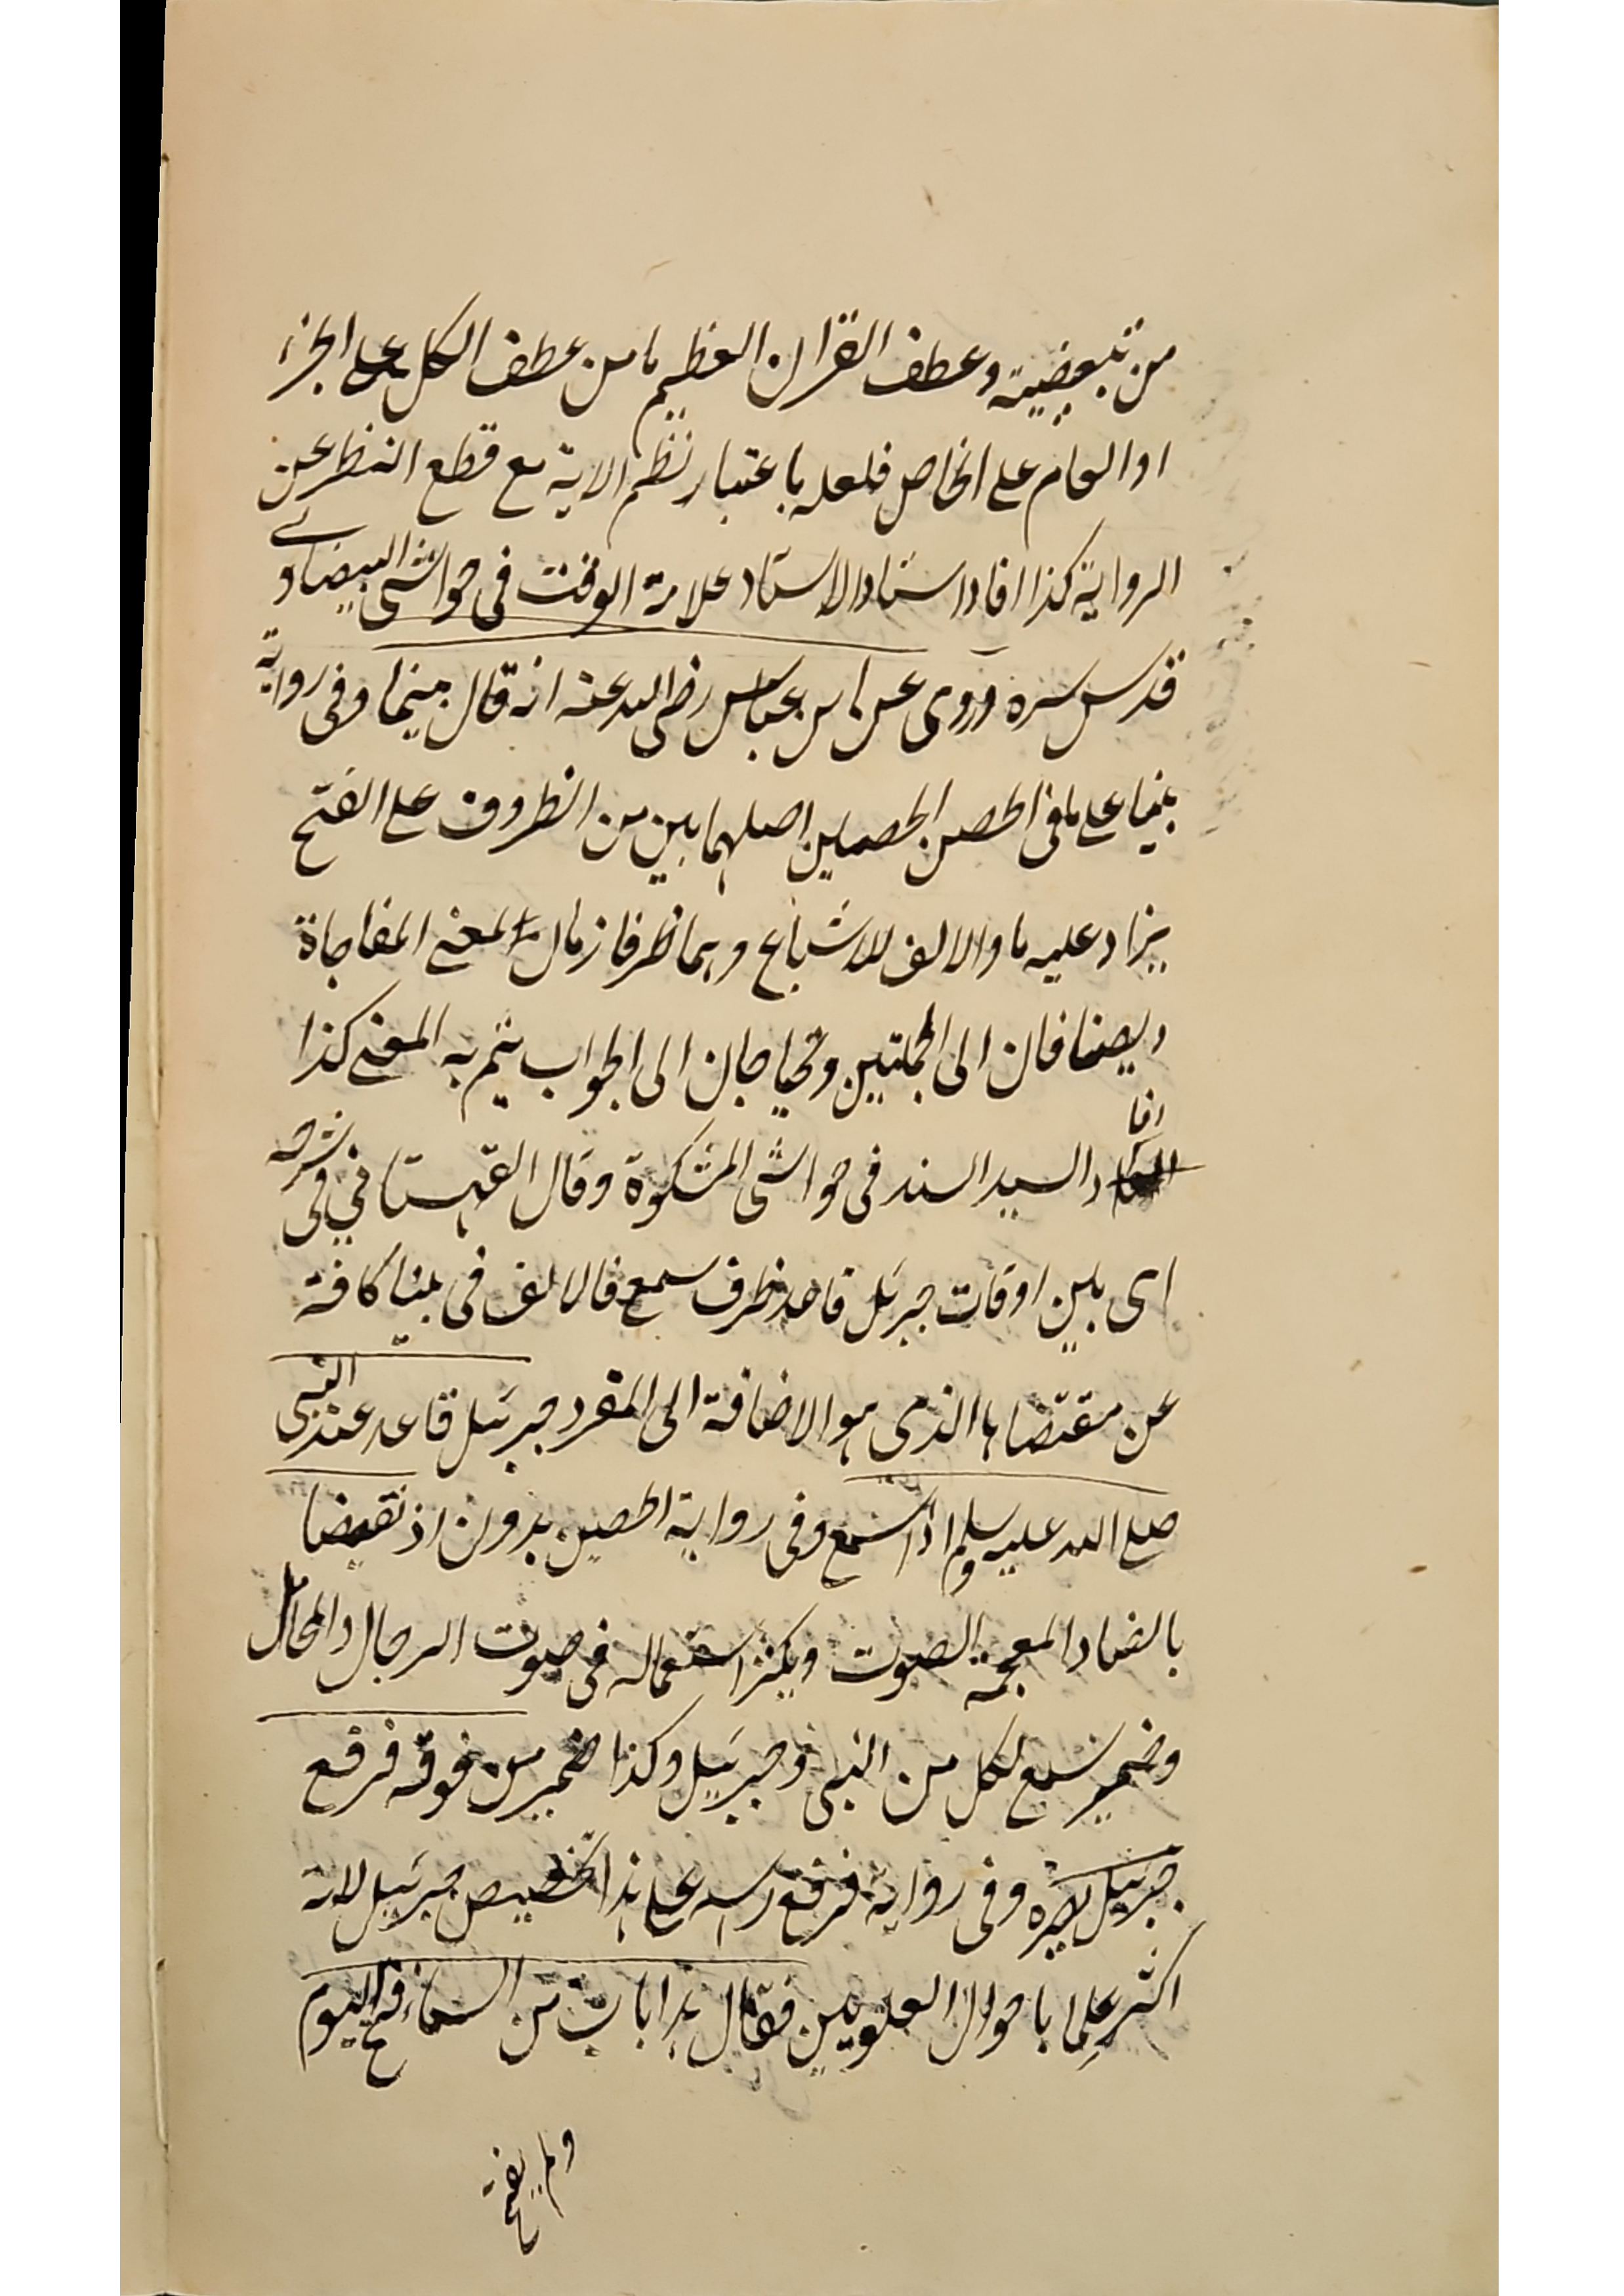 من تبعيضية وعطف القران العظيم ما من عطف الكل على الجزء
او العام على الخاص فلعله باعتبار نظم الاية مع قطع النظر عن
الرواية كذا افاد استاد الاستاد علامة الوقت فى حواشى البيضاوے
قدس سره وروى عن ابن عباس رضى الله عنه انه قال بينما وفى رواية
بينا على ما فى الحصن الحصين اصلهما بين من الظروف على الفتح
يزاد عليه ما والالف للاشباع وهما ظرفا زمان بمعنى المفاجاة
ويضافان الى الجملتين ويحتاجان الى الجواب يتم به المعنى كذا
افاد السيد السند فى حواشى المشكوة وقال القهستانى فى شرحه
اى بين اوقات جبرئل قاعد ظرف سمع فالالف فى بينا كافة
عن مقتضاها الذى هو الاضافة الى المفرد جبرئيل قاعد عند النبى
صلى الله عليه وسلم اذ سمع وفى رواية الحصين بدون اذ نقيضا
بالضاد المعجمة الصوت ويكثر استعماله فى صوت الرحال والمحامل
وضمير سمع لكل من النبى وجبرئيل وكذا ضمير من فوقه فرفع
جبرئيل بصره وفى رواية فرفع راسه على هذا تخصيص جبرئيل لانه
اكثر علما باحوال العلويين فقال هذا باب من السماء فتح اليوم
ولم يفتح